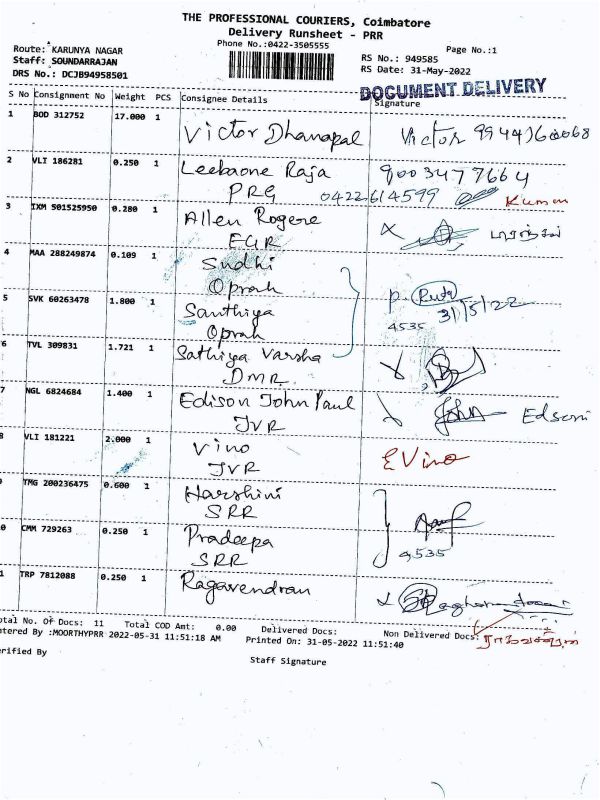 THE PROFESSIONAL COURIERS, Coimbatore
Delivery Runsheet - PRR
Phone No.:0422-3505555
Page No.:1
Route: KARUNYA NAGAR
Staff: SOUNDARRAJAN
DRS No.: DCJB94958501
RS No.: 949585
RS Date: 31-May-2022
DOCUMENT DELIVERY
S No Consignment No Weight PCS Consignee Details Signature
1 BOD 312752 17.000 1
Victor Dhanapal Victor
2 VLI 186281 0.250 1 Leebaone Raja 9003477664
PRG 0422614599 Kumar
3 IXM 501525950 0.280 1 Allen Rogere
EGR
4 MAA 288249874 0.109 1 Sudhi
Oprah
5 SVK 60263478 1.800 1 Santhiya 31/5/22
Oprah 4535
6 TVL 309831 1.721 1 Sathiya Varsha
DMR
7 NGL 6824684 1.400 1 Edison John Paul John
JVR
8 VLI 181221 2.000 1 Vino E Vino
JVR
9 TMG 200236475 0.600 1 Harshini
SRR
0 CMM 729263 0.250 1 Pradeepa 4535
SRR
1 TRP 7812088 0.250 1 Ragavendran
otal No. Of Docs: 11 Total COD Amt: 0.00 Delivered Docs: Non Delivered Docs:
ntered By :MOORTHYPRR 2022-05-31 11:51:18 AM Printed On: 31-05-2022 11:51:40
erified By
Staff Signature